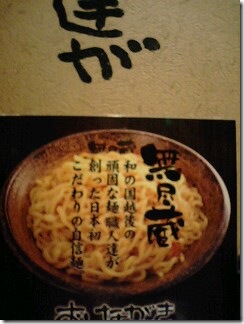 達が
無尽蔵
和の国越後の
頑固な麺職人達が
創った日本初
こだわりの自信麺